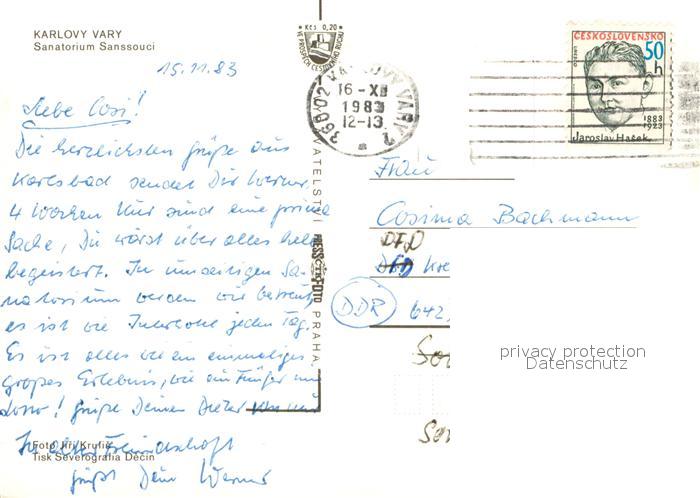 KARLOVY VARY
Sanatorium Sanssouci
15.11.83
Liebe Cosi!
Die herzlichsten Grüße aus
Karlsbad sendet Dir Werner.
4 Wochen Kur sind eine prima
Sache, Du wärst über alles hell
begeistert. Im hiesigen Sa-
natorium werden wir betreut,
es ist wie Interhotel jeden Tag.
Es ist alles wie ein einmaliges
großes Erlebnis, wie ein Fünfer im
Lotto! Grüße Deinen Dieter von mir
In alter Freundschaft
grüßt Dein Werner
Foto Jiří Kruliš
Tisk Severografia Děčín
VYDAVATELSTVÍ PRESSFOTO PRAHA
Kčs 0,20
VE PROSPĚCH
360 02 KARLOVY VARY 2
16-XI
1983
12-13
ČESKOSLOVENSKO
50
h
UNESCO
1883
1923
Jaroslav Hašek
Frau
Cosima Bachmann
DDR
642
privacy protection
Datenschutz